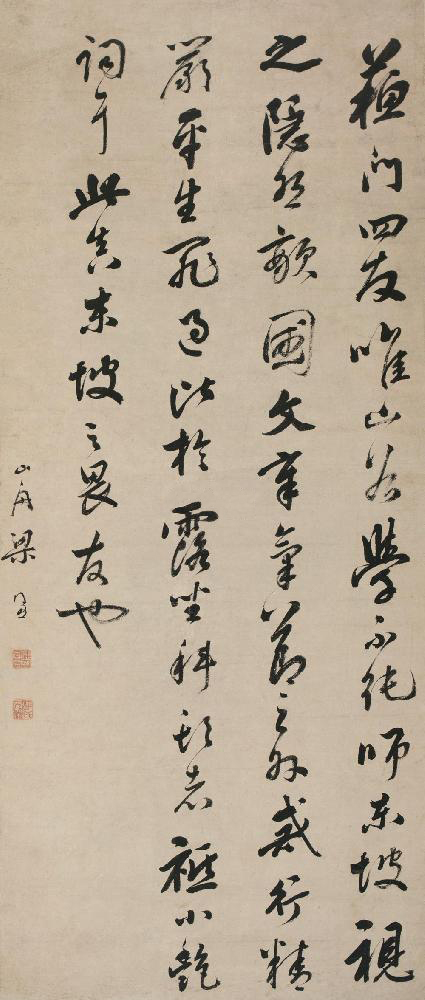 蘇門四友唯山谷學不純師東坡視
之隱然敵國文章氣節之外戒行精
嚴平生罪過比於露坐科頭者祗小艷
詞耳此真東坡之畏友也
山舟梁同書